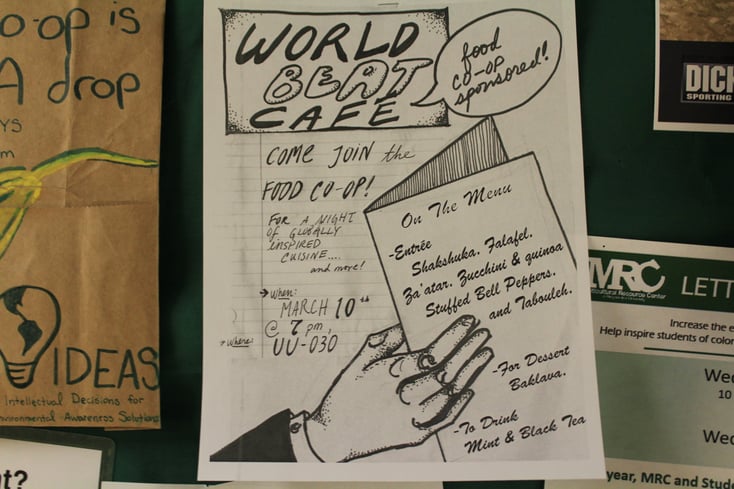 o-op is
A drop
YS
m
IDEAS
Intellectual Decisions for
Environmental Awareness Solutions
nt?
WORLD
BEAT
CAFE
food
CO-OP
sponsored!
COME JOIN the
FOOD CO-OP!
FOR A NIGHT
OF GLOBALLY
INSPIRED
CUISINE....
and more!
→ When:
MARCH 10th
@ 7 pm,
→ Where:
UU-030
On The Menu
-Entrée
Shakshuka, Falafel,
Za'atar, Zucchini & quinoa
Stuffed Bell Peppers,
and Tabouleh.
-For Dessert
Baklava.
-To Drink
Mint & Black Tea
DICK
SPORTING
MRC
LETT
Resource Center
Increase the e
Help inspire students of color
Wed
10
Wed
year, MRC and Stude